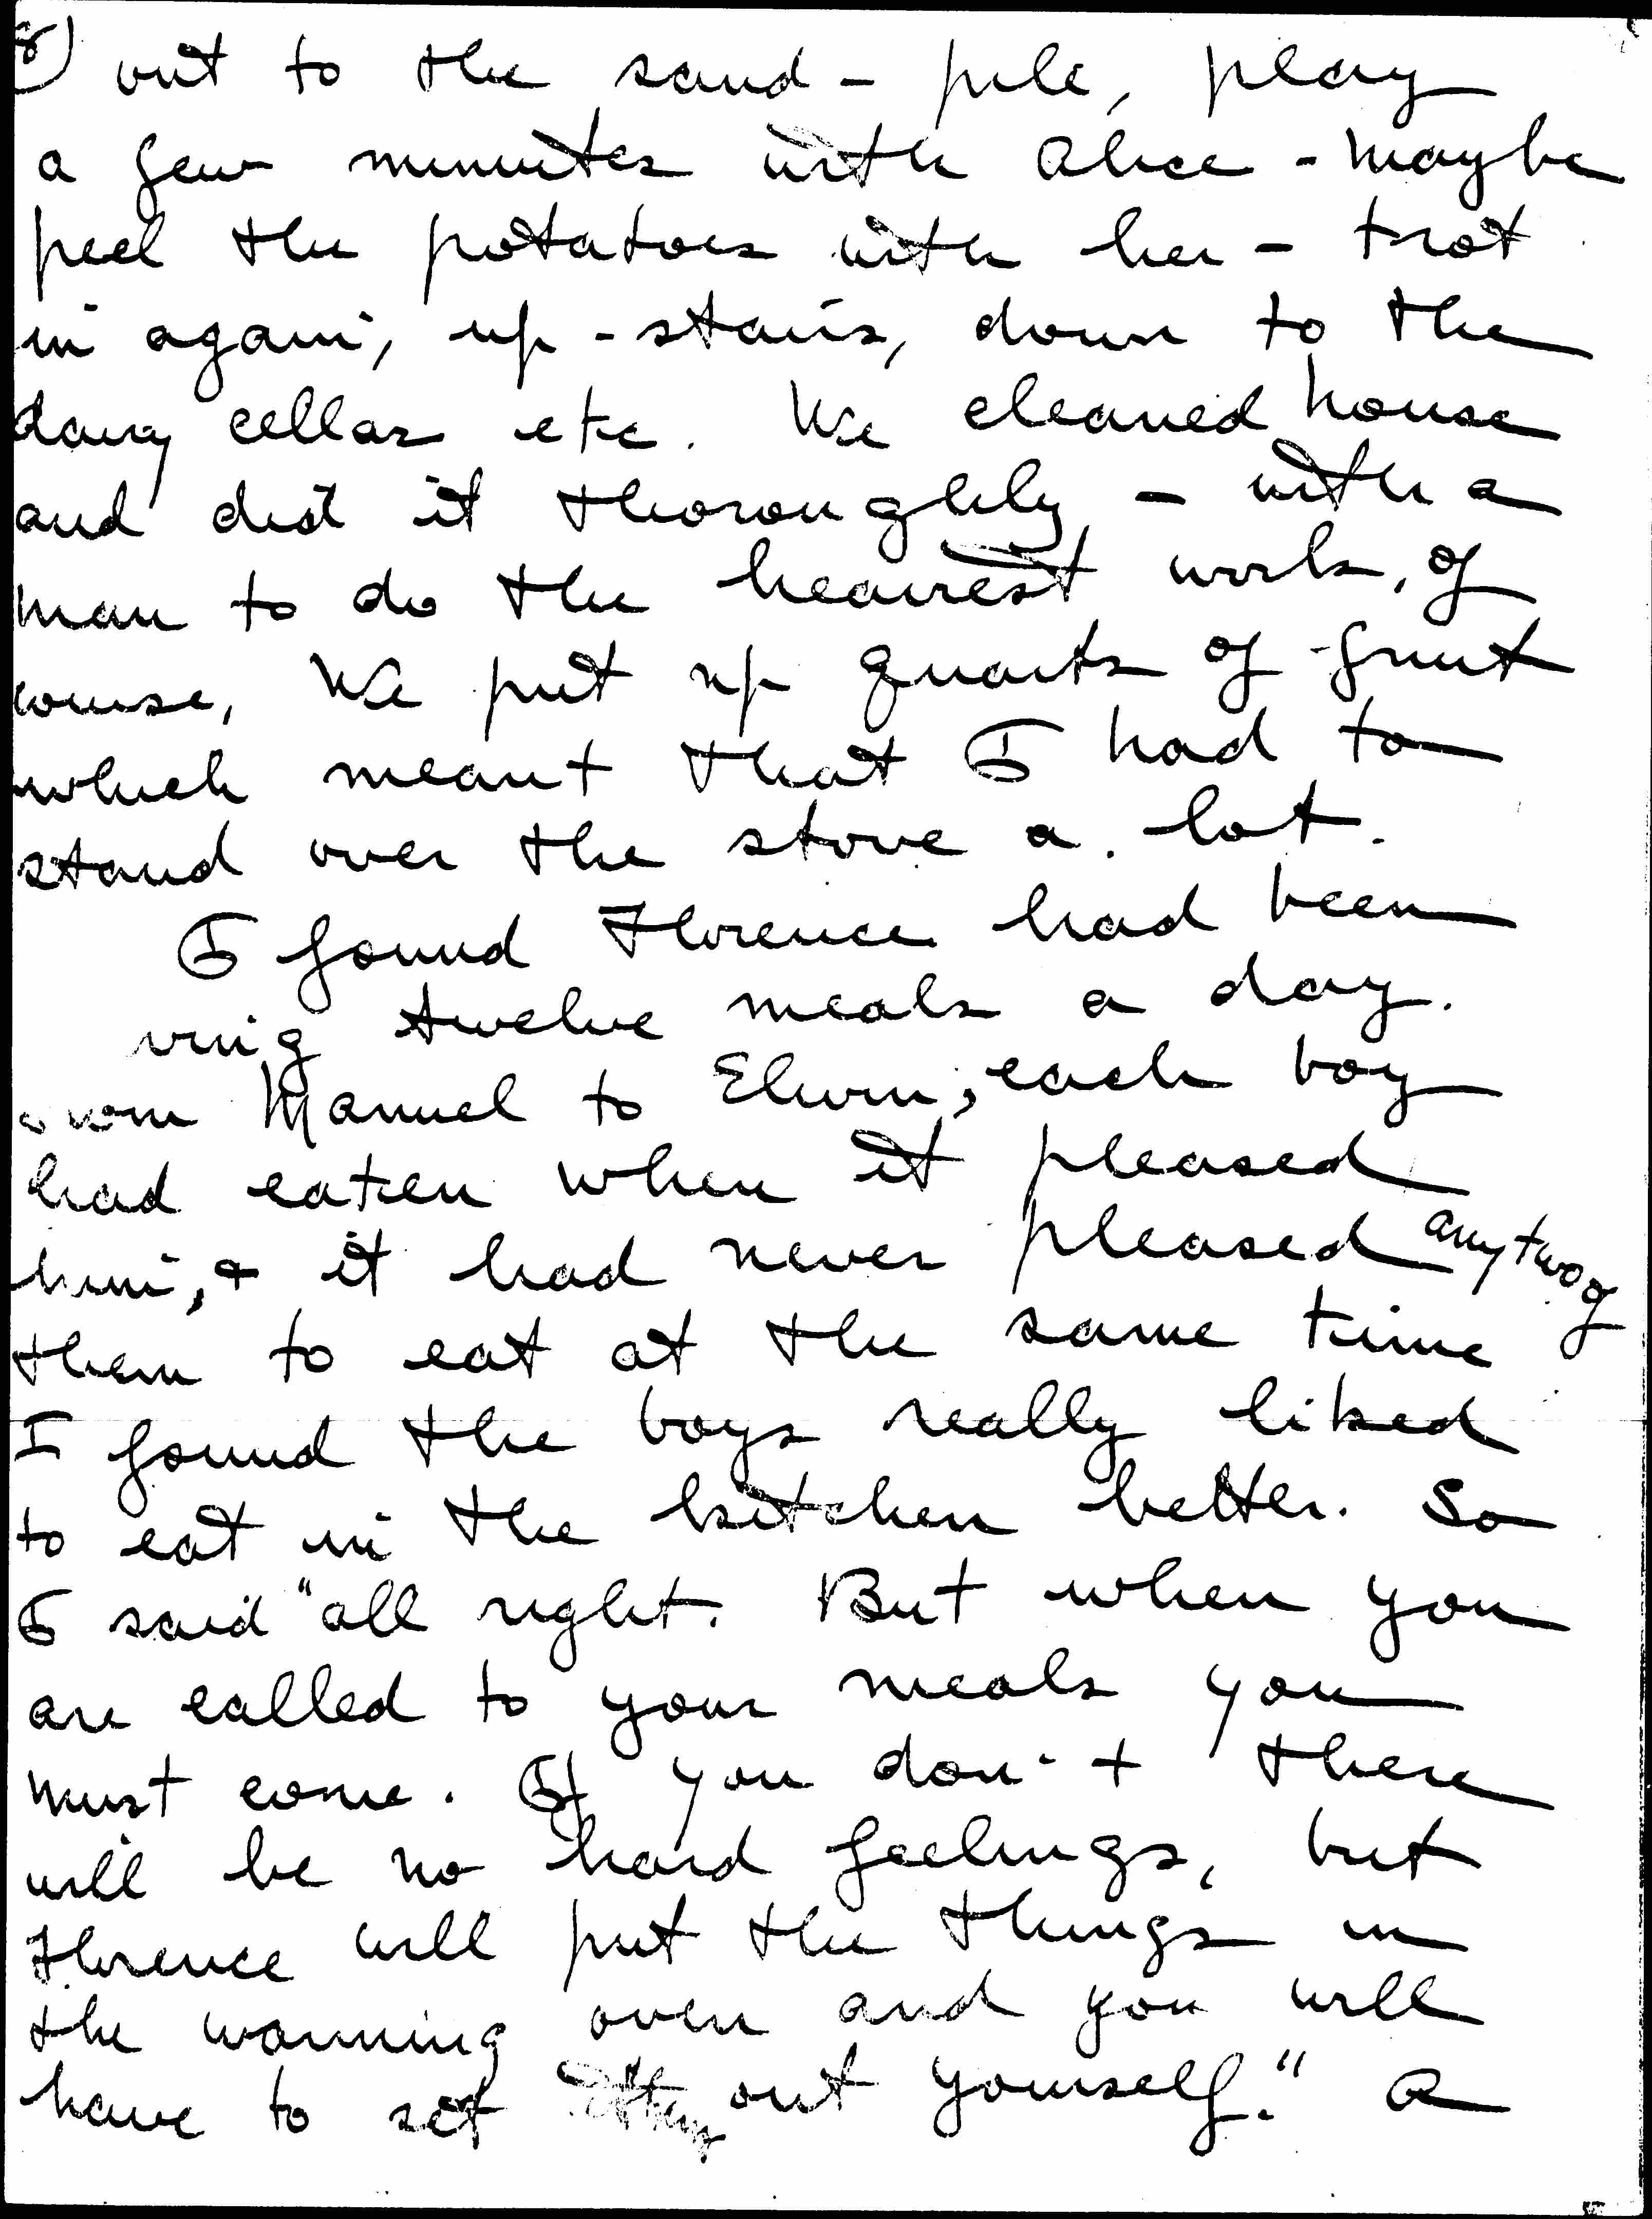 8) out to the sand-pile, play
a few minutes with Alice - maybe
peel the potatoes with her - trot
in again, up-stairs, down to the
dairy cellar etc. We cleaned house
and did it thoroughly - with a
man to do the heaviest work, of
course, We put up quarts of fruit
which meant that I had to
stand over the stove a lot.
I found Florence had been
ving twelve meals a day.
From Manuel to Elwin, each boy
had eaten when it pleased
him, & it had never pleased any two of
them to eat at the same time
I found the boys really liked
to eat in the kitchen better. So
I said "all right. But when you
are called to your meals you
must come. If you don't there
will be no hard feelings, but
Florence will put the things in
the warming oven and you will
have to set them out yourself." A